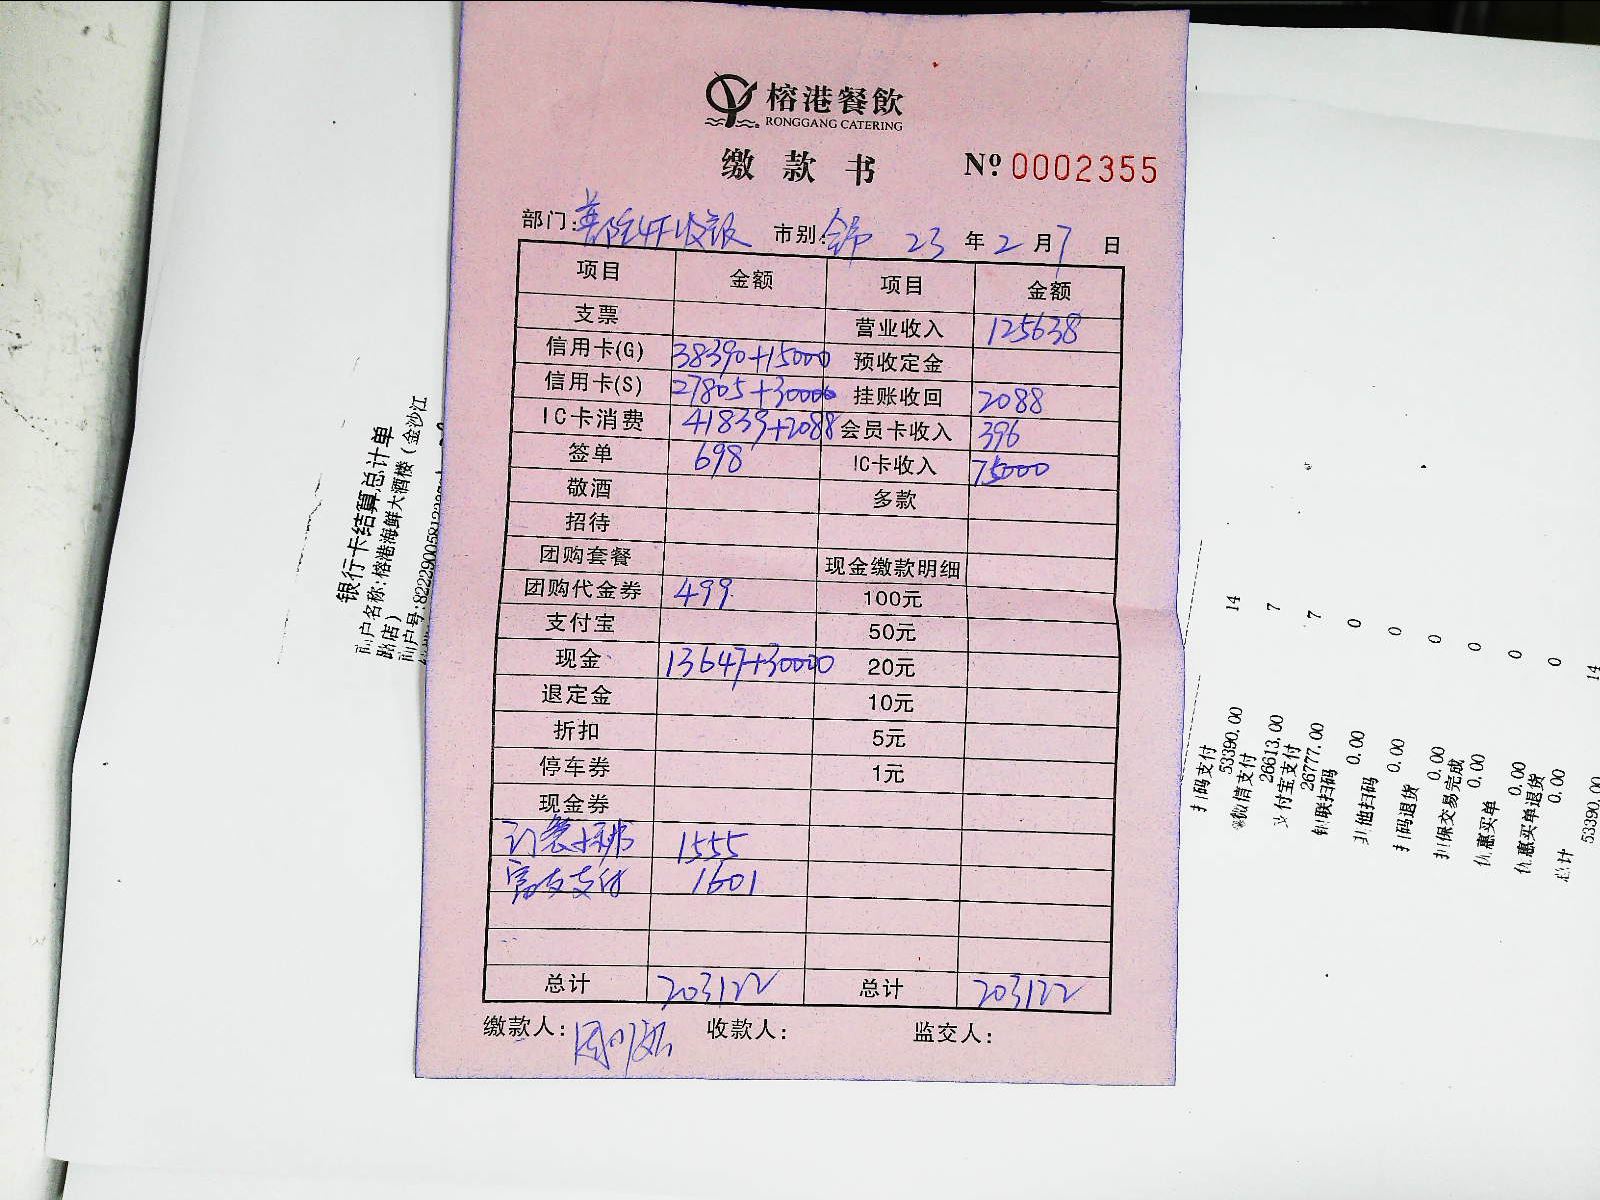 榕港餐飲
RONGGANG CATERING
缴款书 Nº 0002355
部门: 普陀4F收银 市别: 23年2月7日
项目 金额 项目 金额
支票 营业收入 125638
信用卡(G) 38390+15000 预收定金
信用卡(S) 27805+30000 挂账收回 2088
IC卡消费 41839+2088 会员卡收入 396
签单 698 IC卡收入 75000
敬酒 多款
招待
团购套餐 现金缴款明细
团购代金券 499 100元
支付宝 50元
现金 13647+30000 20元
退定金 10元
折扣 5元
停车券 1元
现金券
1555
富友支付 1601
总计 203122 总计 203122
缴款人: 收款人: 监交人:
银行卡结算总计单
商户名称:榕港海鲜大酒楼(金沙江
路店)
商户号:8222900581
扫码支付 53390.00 14
微信支付 26613.00 7
支付宝支付 26777.00 7
银联扫码 0.00 0
其他扫码 0.00 0
扫码退货 0.00 0
担保交易完成 0.00 0
优惠买单 0.00 0
优惠买单退货 0.00 0
总计 53390.00 14